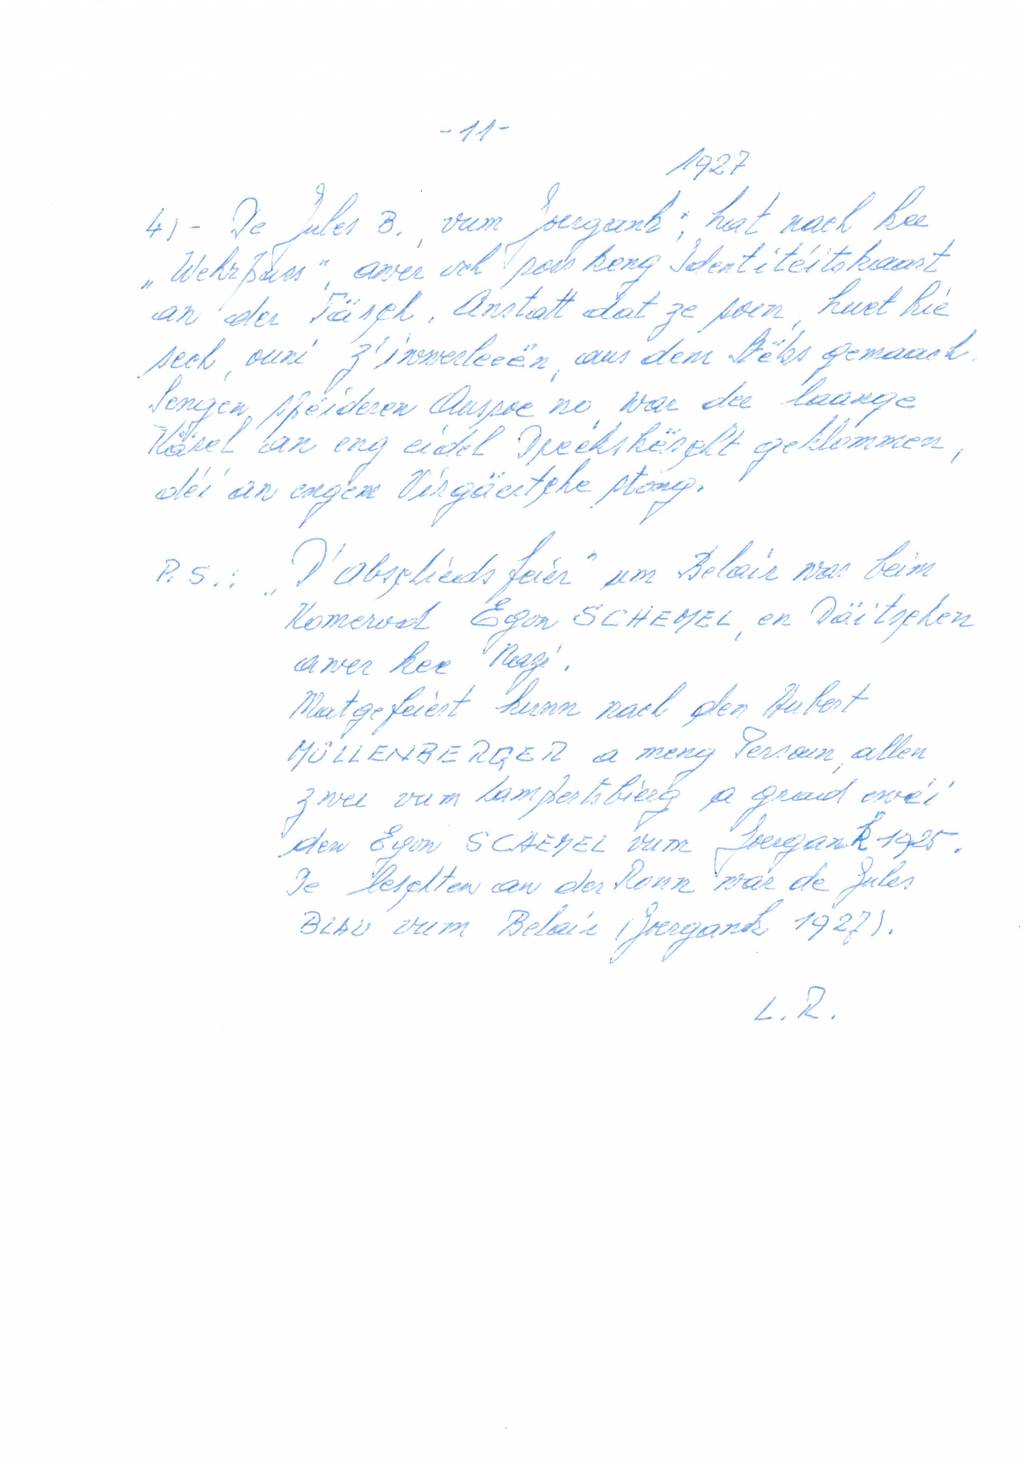 -11-
1927
4) - De Jules B., vum Joergank", hat nach kee
„Wehrpass", awer och soss keng Identitéitskaart
an der Täsch. Anstatt dat ze soen, huet hie
sech, ouni z'iwwerleeën, aus dem Stëbs gemaach.
Sengen spéideren Ausso no, war dee laange
Kärel an eng eidel Dreckskëscht geklommen,
déi an engem Virgäertche stong.
P.S.: „D'Abschiedsfeier" um Belair war beim
Komerod Egon SCHEMEL, en Däitschen
awer kee Nazi.
Matgefeiert hunn nach den Hubert
MÜLLENBERGER a meng Persoun, allen
zwee vum Lampertsbierg a graud ewéi
den Egon SCHEMEL vum Joergank 1925.
De Leschten an der Ronn war de Jules
BLAU vum Belair (Joergank 1927).
L.R.